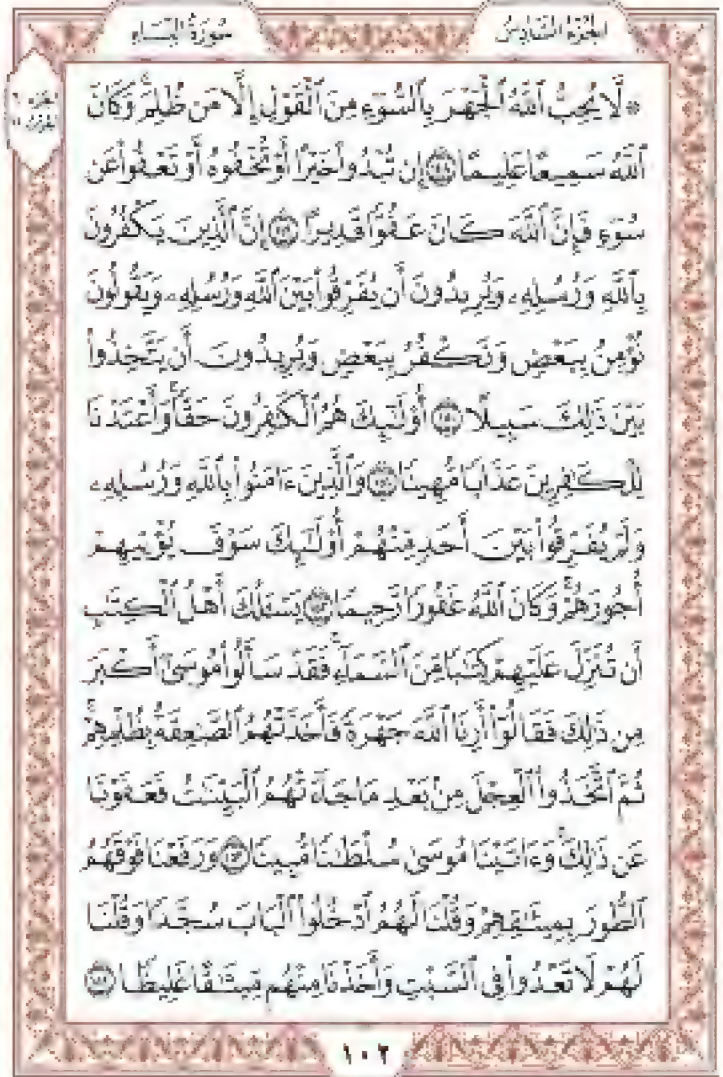 الجزء السادس
سورة النساء
۞ لَّا يُحِبُّ ٱللَّهُ ٱلْجَهْرَ بِٱلسُّوٓءِ مِنَ ٱلْقَوْلِ إِلَّا مَن ظُلِمَۚ وَكَانَ
ٱللَّهُ سَمِيعًا عَلِيمًا ١٤٨ إِن تُبْدُوا۟ خَيْرًا أَوْ تُخْفُوهُ أَوْ تَعْفُوا۟ عَن
سُوٓءٍ فَإِنَّ ٱللَّهَ كَانَ عَفُوًّا قَدِيرًا ١٤٩ إِنَّ ٱلَّذِينَ يَكْفُرُونَ
بِٱللَّهِ وَرُسُلِهِۦ وَيُرِيدُونَ أَن يُفَرِّقُوا۟ بَيْنَ ٱللَّهِ وَرُسُلِهِۦ وَيَقُولُونَ
نُؤْمِنُ بِبَعْضٍ وَنَكْفُرُ بِبَعْضٍ وَيُرِيدُونَ أَن يَتَّخِذُوا۟
بَيْنَ ذَٰلِكَ سَبِيلًا ١٥٠ أُو۟لَٰٓئِكَ هُمُ ٱلْكَٰفِرُونَ حَقًّاۚ وَأَعْتَدْنَا
لِلْكَٰفِرِينَ عَذَابًا مُّهِينًا ١٥١ وَٱلَّذِينَ ءَامَنُوا۟ بِٱللَّهِ وَرُسُلِهِۦ
وَلَمْ يُفَرِّقُوا۟ بَيْنَ أَحَدٍ مِّنْهُمْ أُو۟لَٰٓئِكَ سَوْفَ يُؤْتِيهِمْ
أُجُورَهُمْۗ وَكَانَ ٱللَّهُ غَفُورًا رَّحِيمًا ١٥٢ يَسْـَٔلُكَ أَهْلُ ٱلْكِتَٰبِ
أَن تُنَزِّلَ عَلَيْهِمْ كِتَٰبًا مِّنَ ٱلسَّمَآءِۚ فَقَدْ سَأَلُوا۟ مُوسَىٰٓ أَكْبَرَ
مِن ذَٰلِكَ فَقَالُوٓا۟ أَرِنَا ٱللَّهَ جَهْرَةً فَأَخَذَتْهُمُ ٱلصَّٰعِقَةُ بِظُلْمِهِمْۚ
ثُمَّ ٱتَّخَذُوا۟ ٱلْعِجْلَ مِنۢ بَعْدِ مَا جَآءَتْهُمُ ٱلْبَيِّنَٰتُ فَعَفَوْنَا
عَن ذَٰلِكَۚ وَءَاتَيْنَا مُوسَىٰ سُلْطَٰنًا مُّبِينًا ١٥٣ وَرَفَعْنَا فَوْقَهُمُ
ٱلطُّورَ بِمِيثَٰقِهِمْ وَقُلْنَا لَهُمُ ٱدْخُلُوا۟ ٱلْبَابَ سُجَّدًا وَقُلْنَا
لَهُمْ لَا تَعْدُوا۟ فِى ٱلسَّبْتِ وَأَخَذْنَا مِنْهُم مِّيثَٰقًا غَلِيظًا ١٥٤
١٠٢